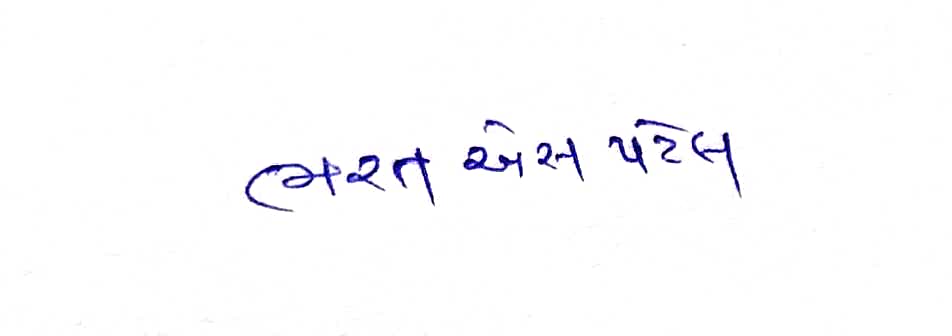 ભરત એસ પટેલ